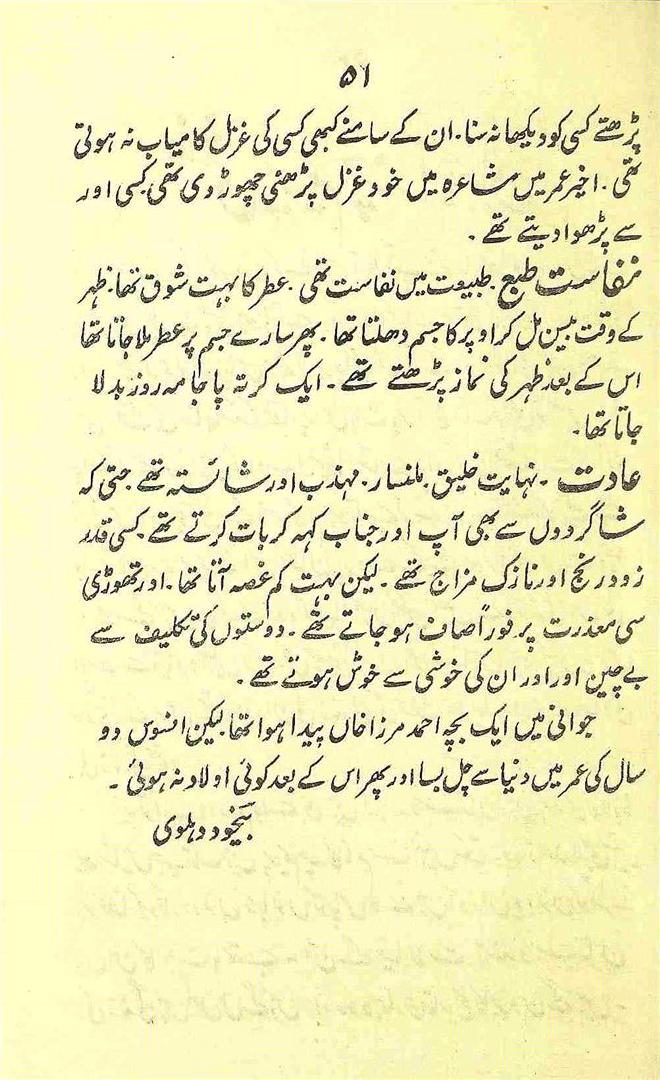 ۵۱
پڑھتے کسی کو دیکھا نہ سنا۔ ان کے سامنے کبھی کسی کی غزل کامیاب نہ ہوتی
تھی۔ اخیر عمر میں مشاعرہ میں خود غزل پڑھنی چھوڑ دی تھی کسی اور
سے پڑھوا دیتے تھے۔
نفاست طبع۔ طبیعت میں نفاست تھی۔ عطر کا بہت شوق تھا۔ ظہر
کے وقت بیسن مل کر اوپر کا جسم دھلتا تھا۔ پھر سارے جسم پر عطر ملا جاتا تھا
اس کے بعد ظہر کی نماز پڑھتے تھے۔ ایک کرتہ پاجامہ روز بدلا
جاتا تھا۔
عادت۔ نہایت خلیق۔ ملنسار۔ مہذب اور شائستہ تھے۔ حتیٰ کہ
شاگردوں سے بھی آپ اور جناب کہہ کر بات کرتے تھے۔ کسی قدر
زود رنج اور نازک مزاج تھے۔ لیکن بہت کم غصہ آتا تھا۔ اور تھوڑی
سی معذرت پر فوراً صاف ہو جاتے تھے۔ دوستوں کی تکلیف سے
بے چین اور اور ان کی خوشی سے خوش ہوتے تھے۔
جوانی میں ایک بچہ احمد مرزا خاں پیدا ہوا تھا لیکن افسوس دو
سال کی عمر میں دنیا سے چل بسا اور پھر اس کے بعد کوئی اولاد نہ ہوئی۔
بیخود دہلوی